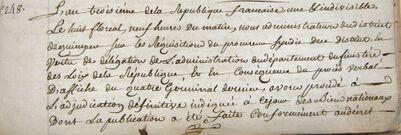 2248.
L'an troisieme de la Republique francaise une et indivisible.
Le huit floreal, neuf heures du matin, nous administrateurs du district
de guingan sur les Requisitions du procureur syndic dece District, En
Vertu de délégation de L'administration du département du finistere
des Loix de la République, Et En Consequence du procès verbal
D'affiche du quatre Germinal dernier, avons procédé a
L'adjudication définitive indiquée a cejour des Biens nationaux
Dont La publication a été faite conformément audécret